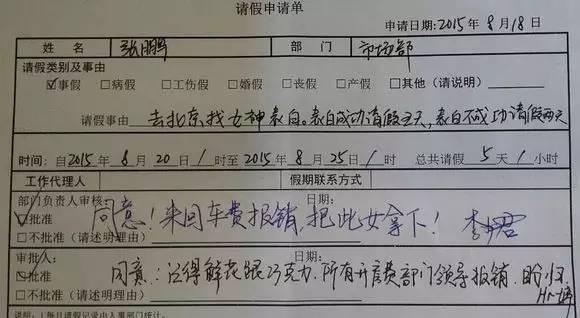 请假申请单
申请日期:2015年8月18日
姓名 张鹏 部门 市场部
请假类别及事由
☑事假 □病假 □工伤假 □婚假 □丧假 □产假 □其他（请说明）
请假事由 去北京找女神表白。表白成功请假五天，表白不成功请假两天
时间：自2015年8月20日1时至2015年8月25日1时 总共请假5天1小时
工作代理人 假期联系方式
部门负责人审核： 日期：
☑批准 同意！来回车费报销，把此女拿下！ 李君
□不批准（请述明理由）
审批人： 日期：
☑批准 同意：记得鲜花跟巧克力，所有开房费部门领导报销，盼归
□不批准（请述明理由） Hr-婷
说明：1每月请假记录由人事部门统计。